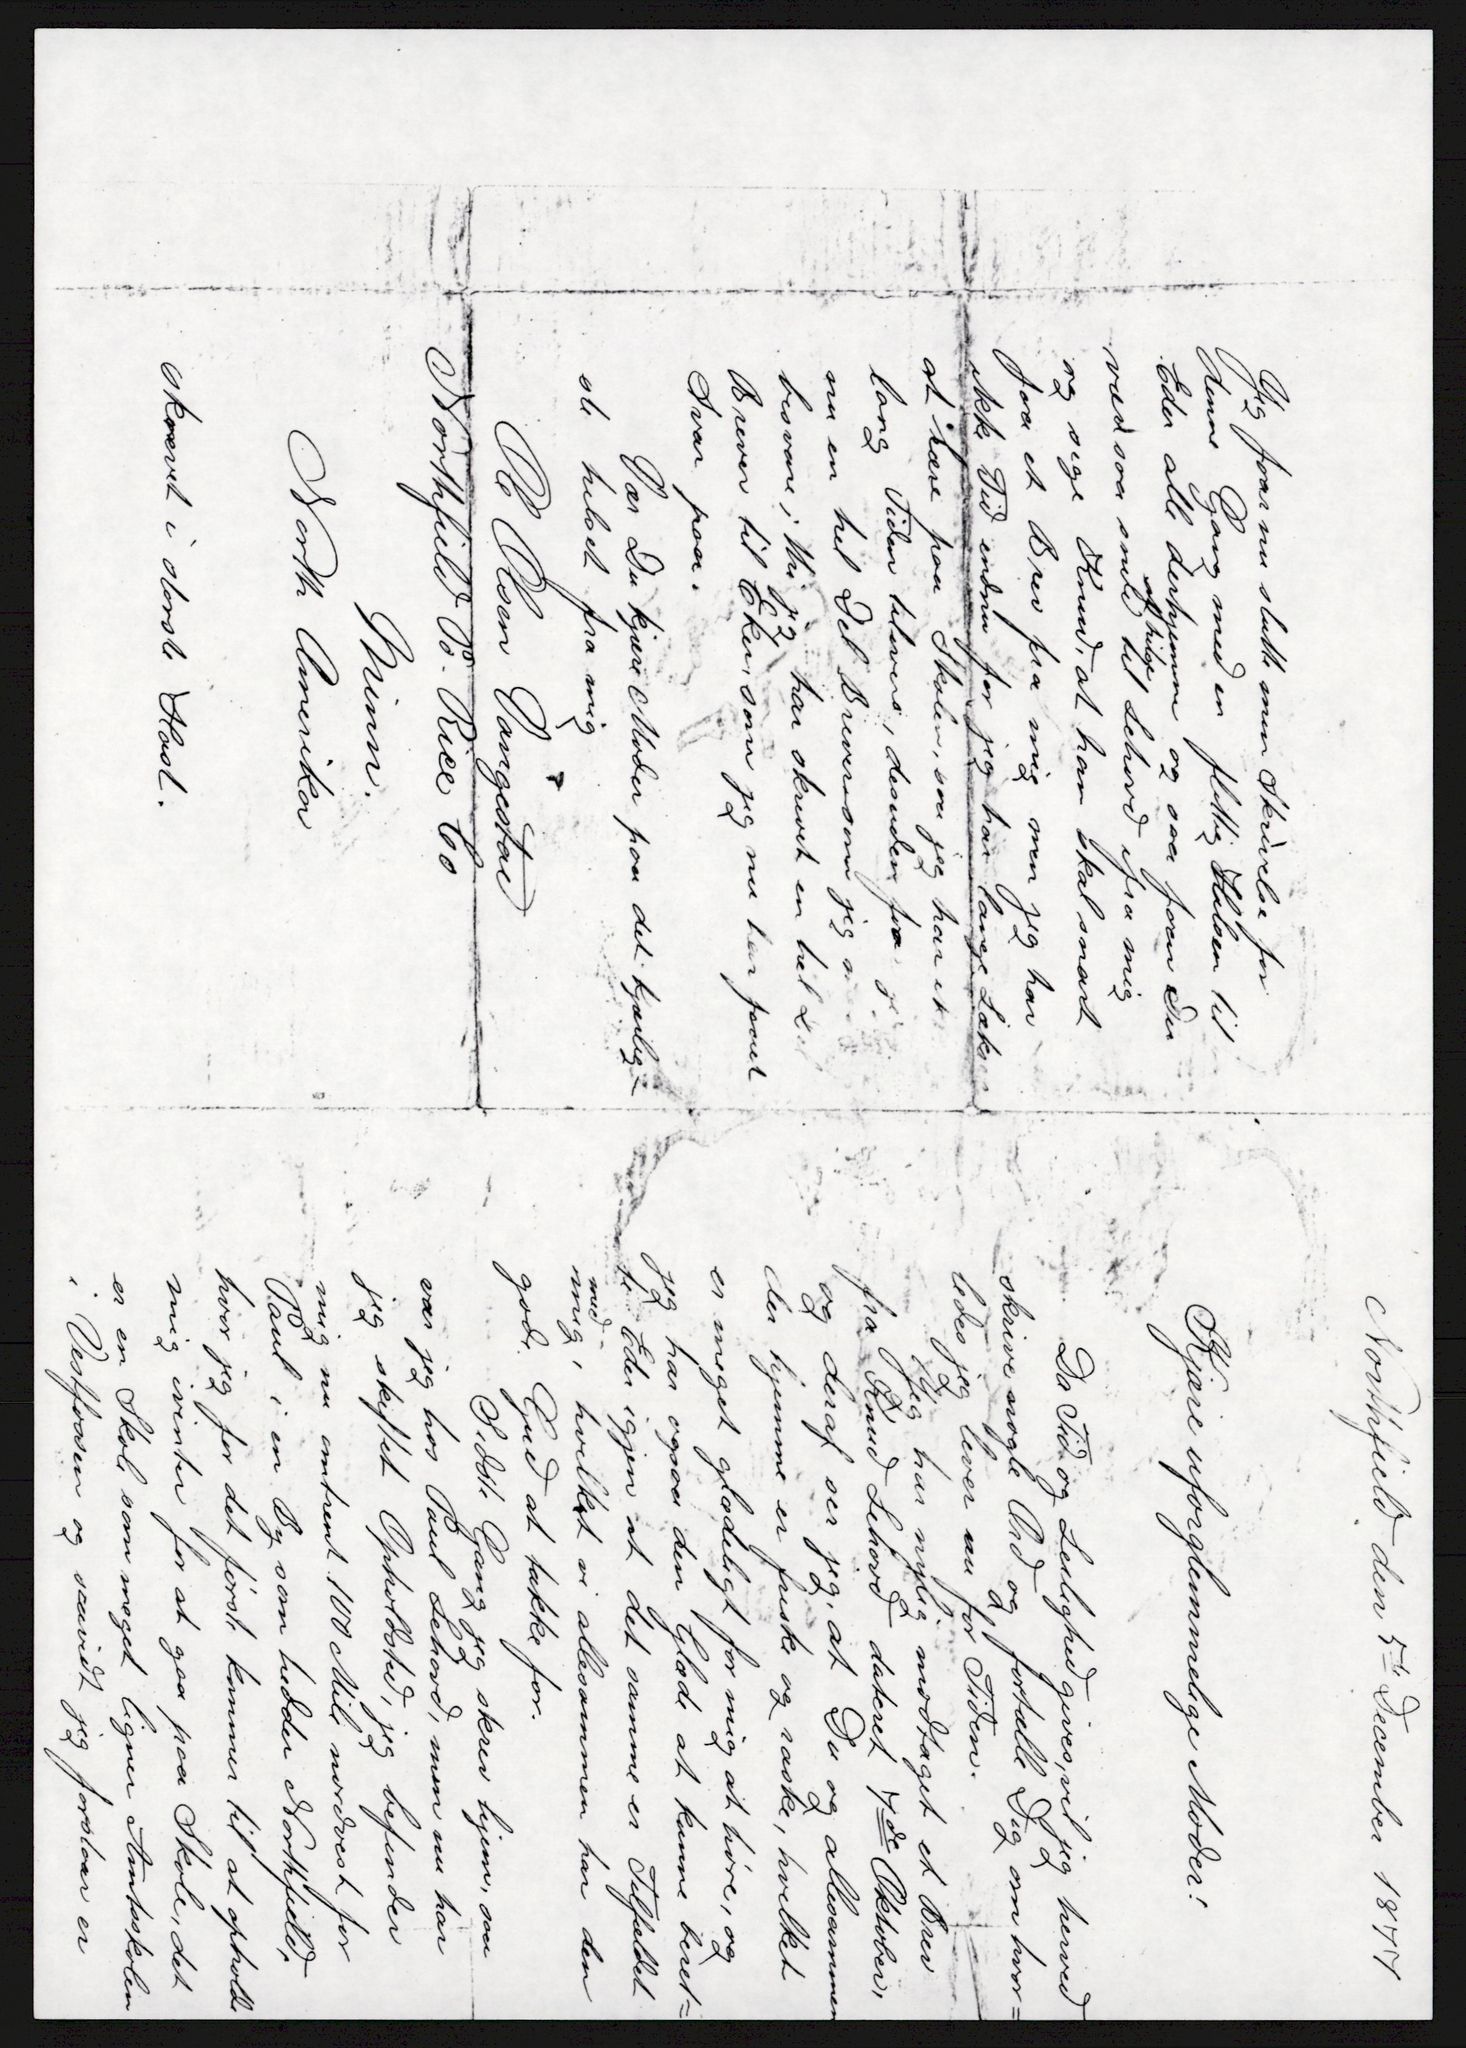 Northfield den 5te December 1877
Kjære uforglemmelige Moder!
Da Tid og Leilighed gives, vil jeg herved
skrive nogle Ord og fortælle Dig om hvor=
ledes jeg lever nu for Tiden.
Jeg har nylig modtaget et Brev
fra Knud Lehovd dateret 7de Oktober,
og deraf ser jeg, at Du og allesammen
der hjemme er friske og raske, hvilket
er meget glædeligt for mig at høre, og
jeg har ogsaa den Glæde at kunne beret=
te Eder igjen at det samme er Tilfældet
med
mig, hvilket vi allesammen har den
gode Gud at takke for.
Sidste Gang jeg skrev hjem, saa
var jeg hos Paul Lehovd, men nu har
jeg skiftet Opholdsted, jeg befinder
mig nu omtrent 100 Mile nordvest for
Paul i en By som heder Northfield,
hvor jeg for det første kommer til at opholde
mig ivinter for at gaa paa Skole, det
er en Skole som meget ligner Amtsskolen
i Vestfossen og saavidt jeg forstaar er
Jeg faar nu slutte min Skrivelse for
denne Gang med en flittig Hilsen til
Eder alle derhjemme og saa faar Du
ved saa snild at hilse til Lehovd ifra mig
og sige Knud, at han skal snart
faa et Brev fra mig men jeg har
ikke Tid endnu for jeg har lange Lekser
at lære paa Skolen, saa jeg har ik
lang Tiden tilovers, desuden faar j
nu en hel Del Brever som jeg
besvare, thi jeg har skrevet en hel Del
Brever til Eker, som jeg nu har faaet
Svar paa.
Vær Du kjære Moder paa det kjærlig=
ste hilset fra mig
Ole Olsen Vangestad
Northfield Po. Rice Co
Minn.
North Amerika
skrevet i største Hast.